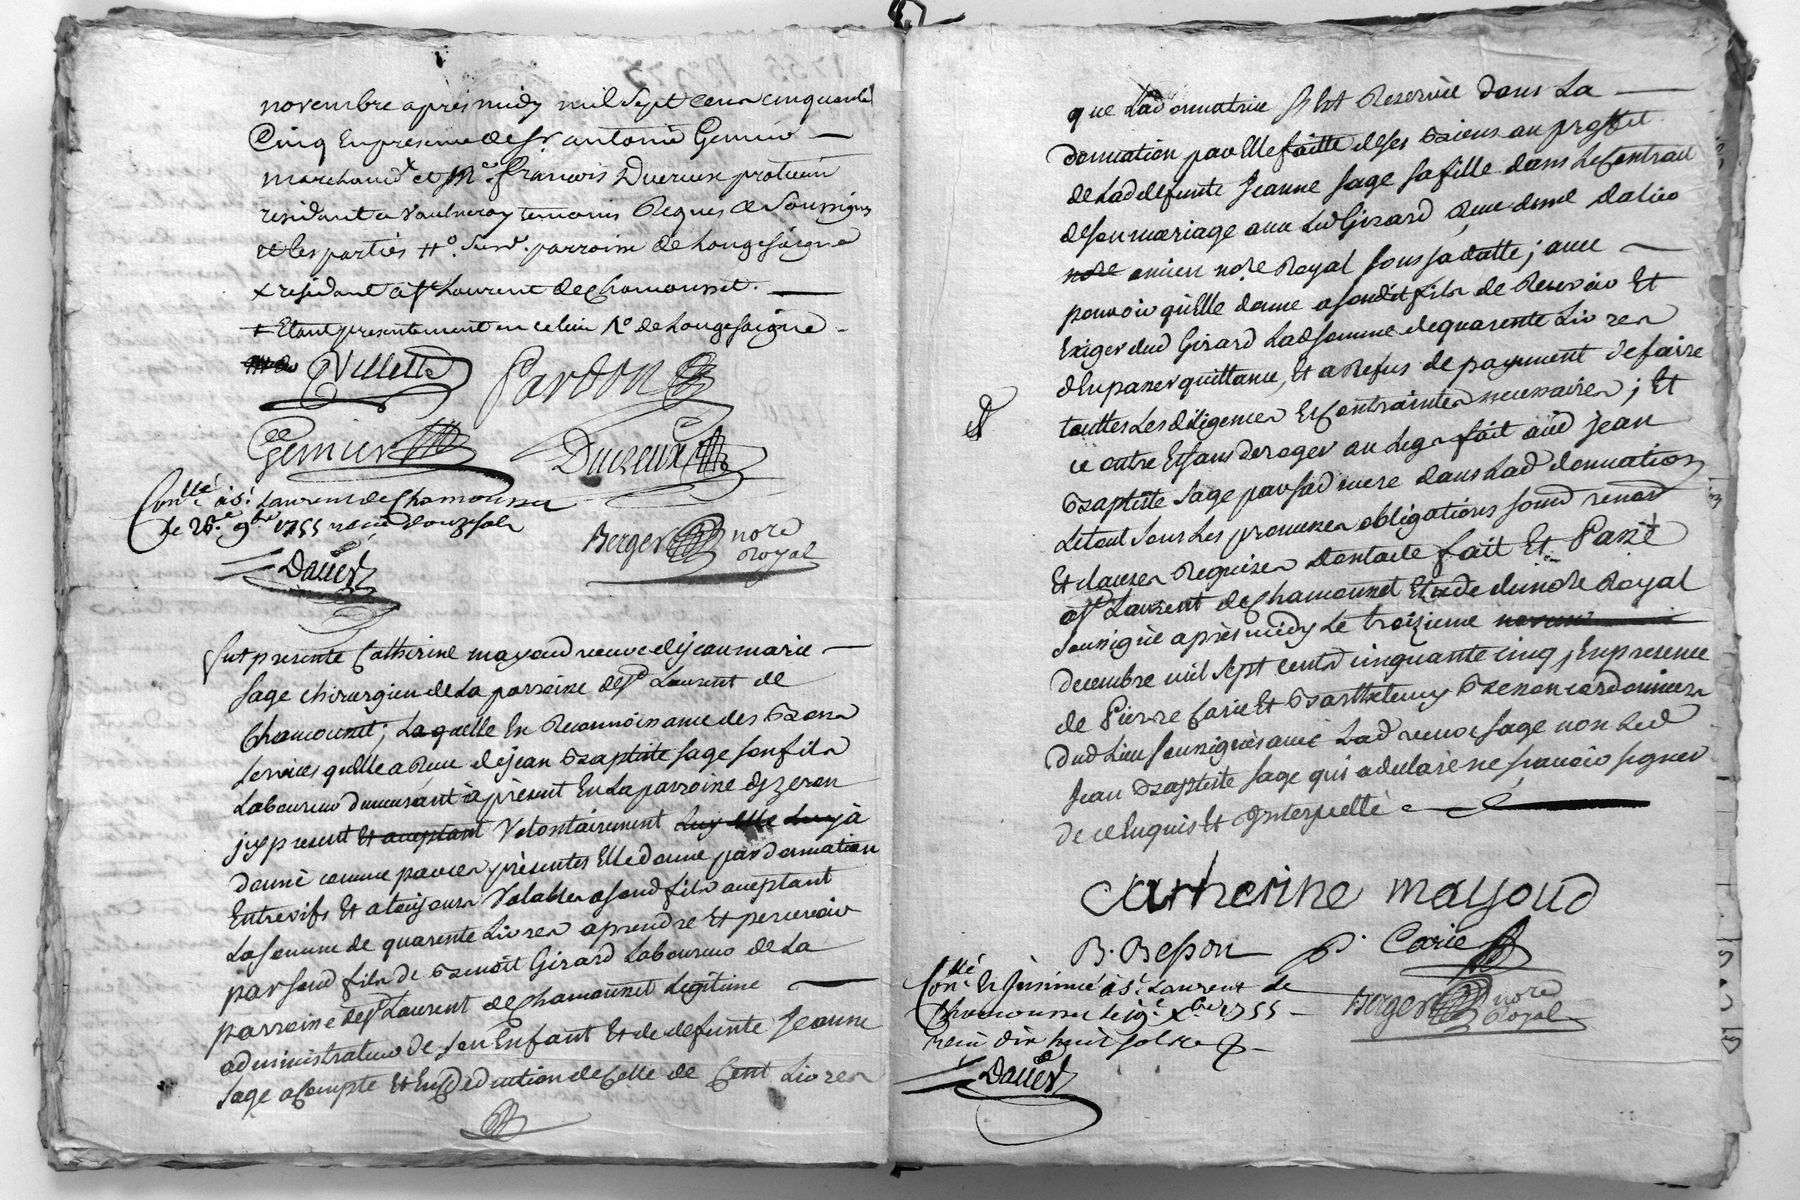 novembre apres midy mil sept cent cinquante
Cinq En presence de Sr. antoine Genier
marchand et Me. François Ducreux praticien
residant a temoins Requis et Soussignes
et les parties parroisse de Longesaigne
x residant a St Laurent de Chamousset.
+ Etant presentement en ce lieu de Longesaigne
Villette Pardon
Genier Ducreux
Conllé à St. Laurent de Chamousset
le 28e 9bre 1755 reçu douze sols
Berger nore
Royal
Dauer
fut presente Catherine mayoud veuve de jean marie
sage chirurgien de La parroisse de St Laurent de
Chamousset; Laquelle En Reconnoissance des Bons
services quelle a Reçue de jean Baptiste sage son fils
Laboureur demeurant à présent En La parroisse dyzeron
icy present Et aceptant Volontairement Luy elle Luy à
donné comme par ces présentes Elle donne par donnation
Entrevifs Et a toujours Valable a sond fils aceptant
La somme de quarente Livres a prendre Et percevoir
par sond fils de Benoit Girard Laboureur de La
parroisse de St Laurent de Chamousset Legitime
administrateur de son Enfant Et de deffunte Jeanne
sage a Compte Et En deduction de Celle de Cent Livres
que Lad donnatrice s'est Reservée dans La
donnation par Elle faitte de ses Biens au proffit
de Lad deffunte Jeanne sage sa fille dans Le Contrat
de son mariage avec Led Girard, Reçu dud
nore ancien nore Royal sous sa datte; avec
pouvoir qu'Elle donne a sondit fils de Recevoir Et
Exiger dud Girard Lad somme de quarente Livres
d'En passer quittance, Et a Refus de payement de faire
touttes Les diligences Et Contraintes necessaires; Et
ce outre Et sans deroger au Legs fait aud jean
Baptiste sage par sad mere dans Lad donnation
Le tout sous Les promesses obligations soumd renond
Et clauses Requises Dont acte fait Et Passé
à St Laurent de Chamousset Etude du nore Royal
soussigné après midy Le troizieme
decembre mil sept cents cinquante cinq, En presence
de Pierre Carie Et Barthelemy Besson cordonniers
dud Lieu soussignés avec Lad veuve sage non Led
Jean Baptiste sage qui a declaré ne sçavoir signer
de ce Enquis Et Interpellé
Catherine mayoud
B. Besson p. Carie
Conllé Et Insinué à St. Laurent de
Chamousset le 19e Xbre 1755
reçu dix huit sols
Berger nore
Royal
Dauer